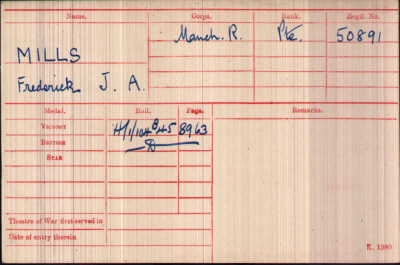 Name. Corps. Rank. Regtl. No.
MILLS Manch. R. Pte. 50891
Frederick J. A.
Medal. Roll. Page. Remarks.
VICTORY H/1/104B45 8963
BRITISH D
STAR
Theatre of War first served in
Date of entry therein
K. 1380